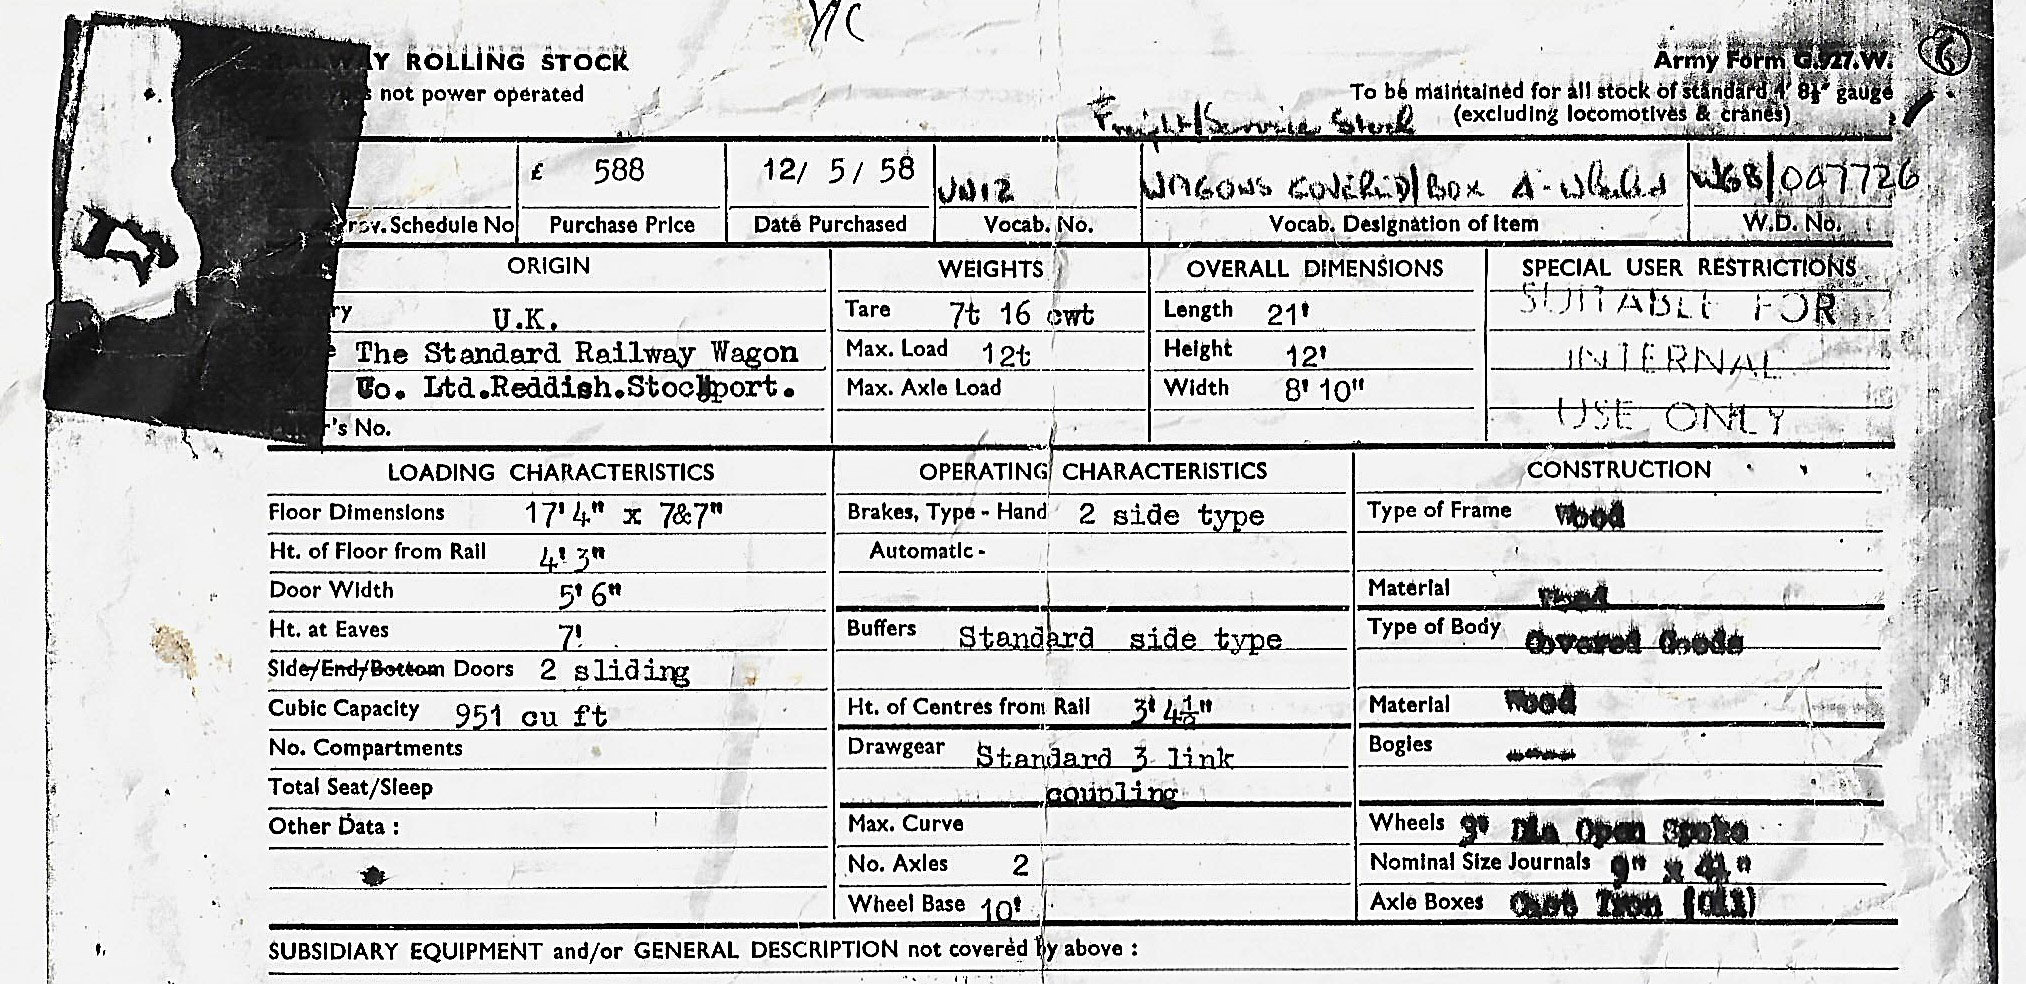 Y/C
RAILWAY ROLLING STOCK
Army Form G.927.W.
6
not power operated
To be maintained for all stock of standard 4' 8½" gauge
Freight/Service Stock
(excluding locomotives & cranes)
£ 588
12/ 5/ 58
WAGONS COVERED/BOX 4-wheeled
WGB/047726
Prov. Schedule No
Purchase Price
Date Purchased
Vocab. No.
Vocab. Designation of Item
W.D. No.
ORIGIN
WEIGHTS
OVERALL DIMENSIONS
SPECIAL USER RESTRICTIONS
U.K.
Tare 7t 16 cwt
Length 21'
SUITABLE FOR
The Standard Railway Wagon
Max. Load 12t
Height 12'
INTERNAL
Co. Ltd.Reddish.Stockport.
Max. Axle Load
Width 8' 10"
USE ONLY
's No.
LOADING CHARACTERISTICS
OPERATING CHARACTERISTICS
CONSTRUCTION
Floor Dimensions 17' 4" x 7&7"
Brakes, Type - Hand 2 side type
Type of Frame Wood
Ht. of Floor from Rail 4' 3"
Automatic -
Door Width 5' 6"
Material Wood
Ht. at Eaves 7'
Buffers Standard side type
Type of Body Covered Goods
Side/End/Bottom Doors 2 sliding
Cubic Capacity 951 cu ft
Ht. of Centres from Rail 3' 4½"
Material Wood
No. Compartments
Drawgear Standard 3 link
Bogies
Total Seat/Sleep
coupling
Other Data :
Max. Curve
Wheels Dia Open Spoke
No. Axles 2
Nominal Size Journals 9" x 4¼"
Wheel Base 10'
Axle Boxes Cast Iron (Oil)
SUBSIDIARY EQUIPMENT and/or GENERAL DESCRIPTION not covered by above :